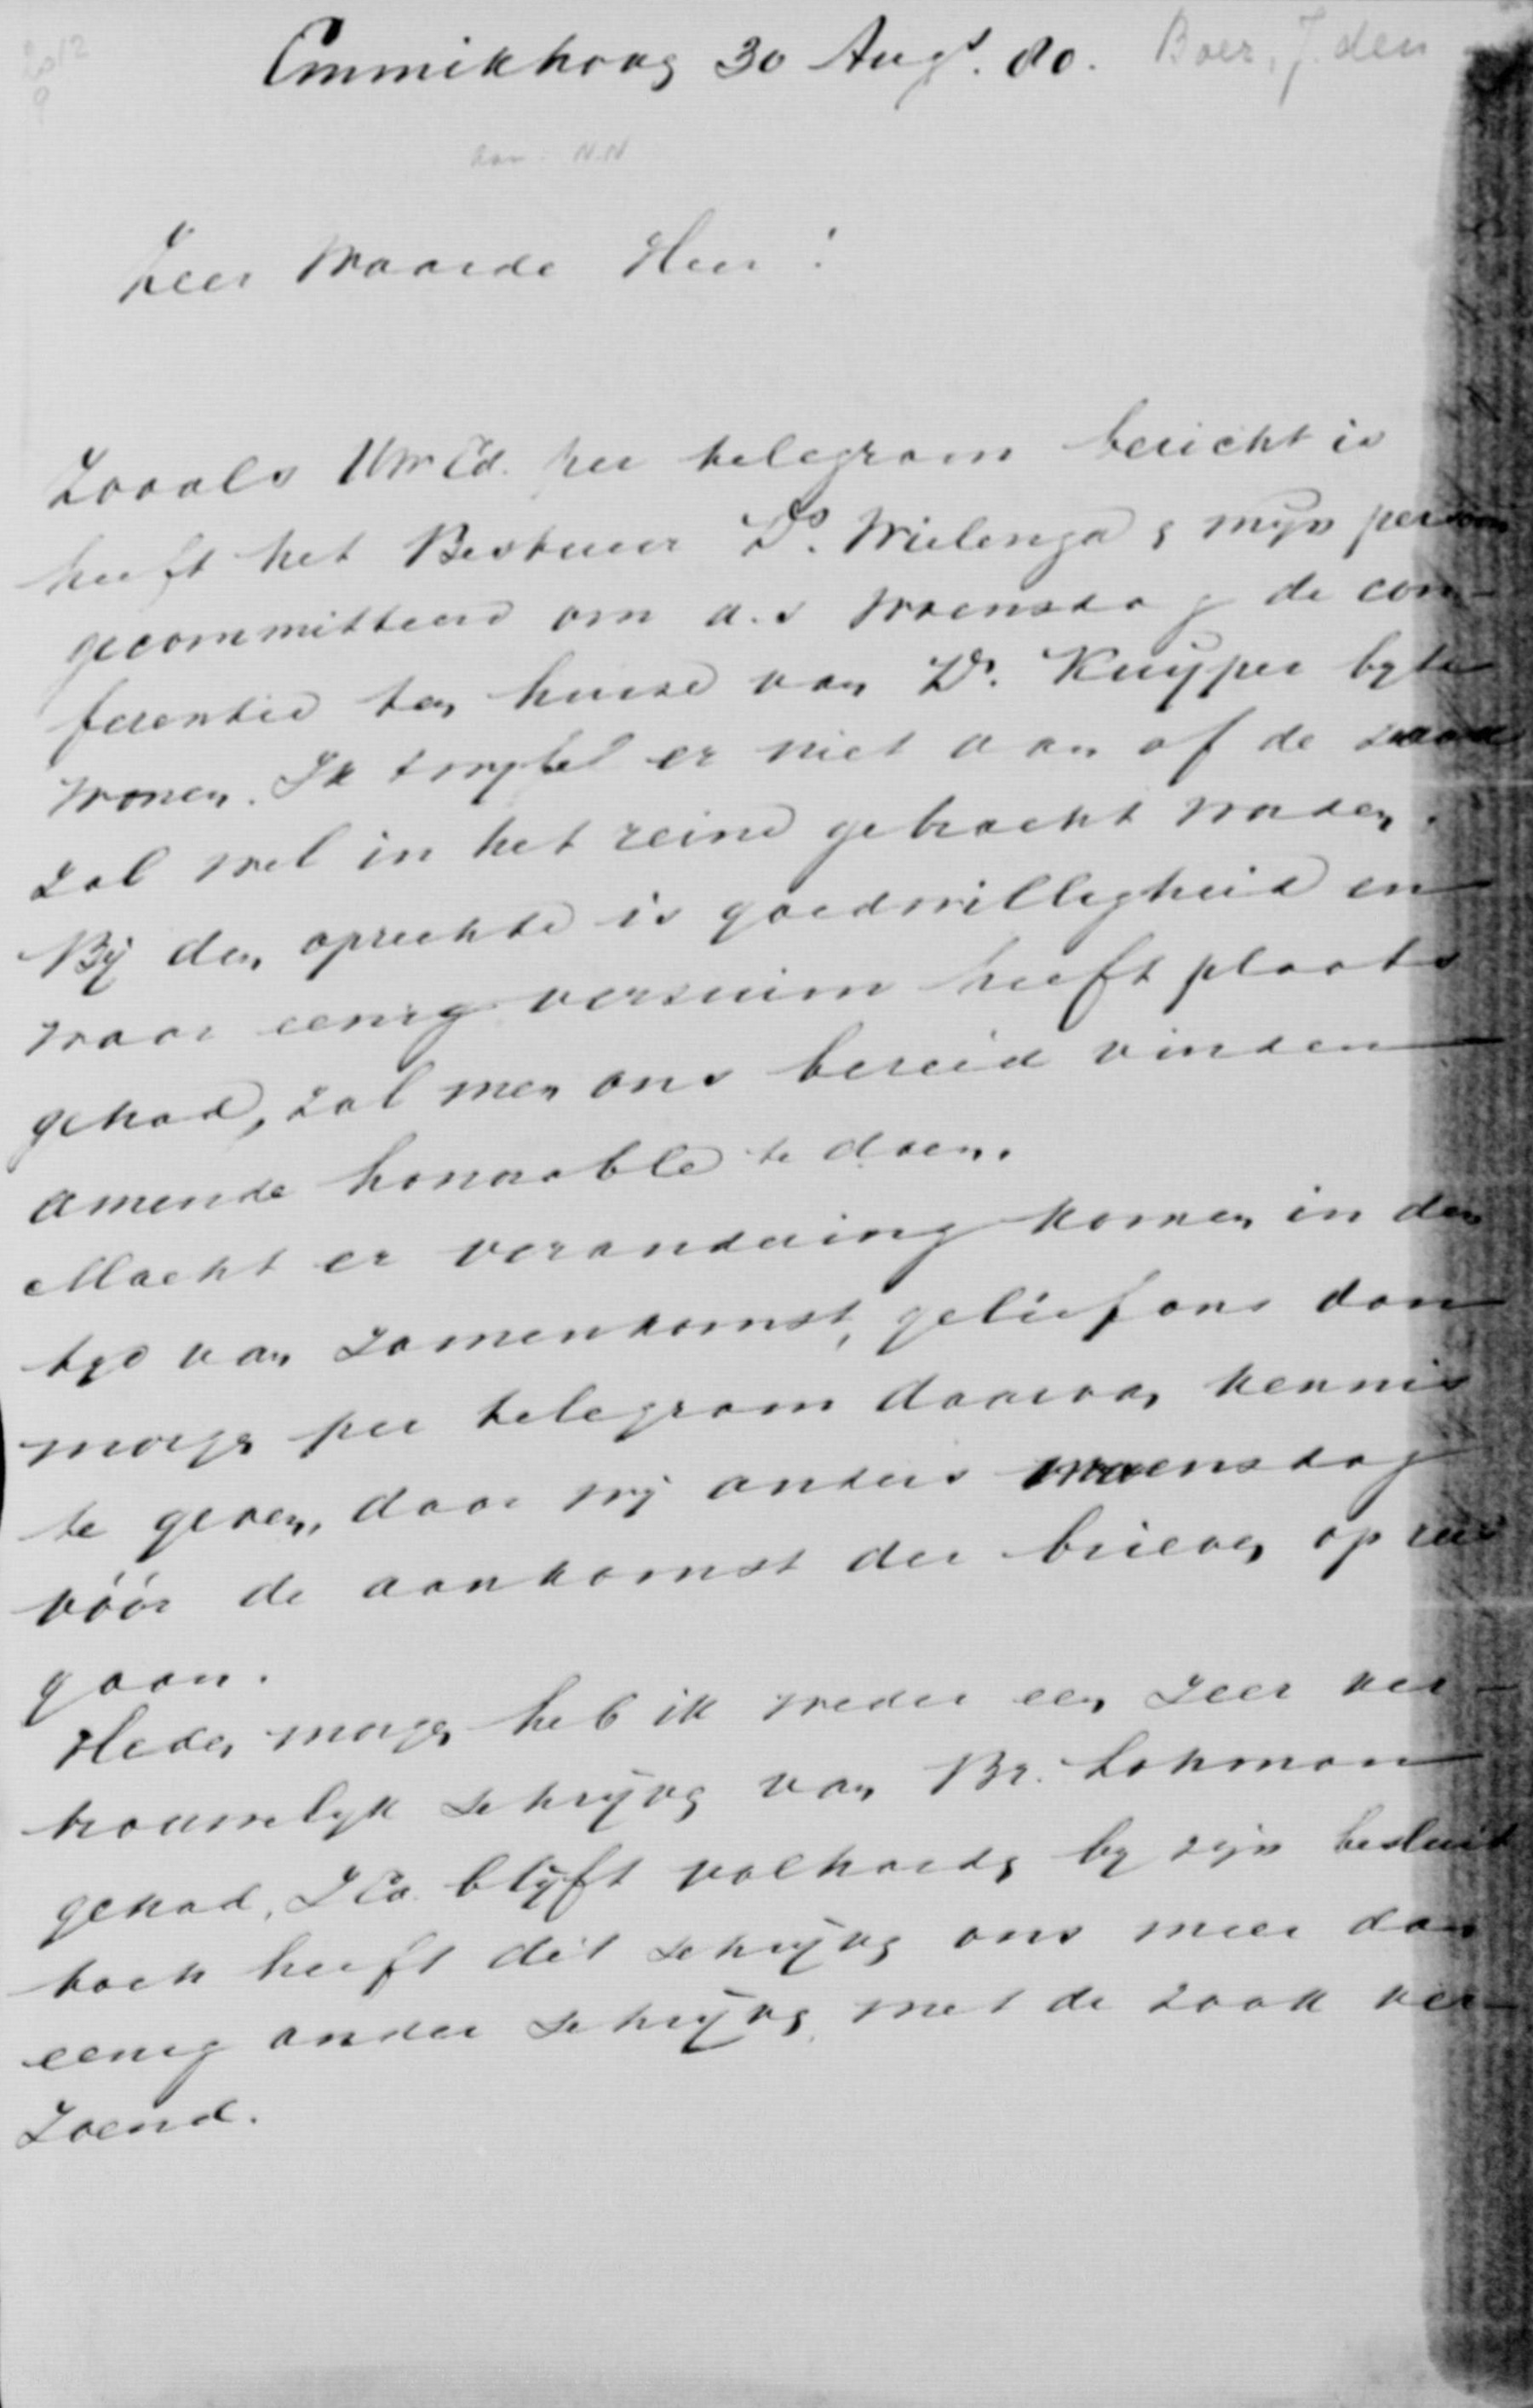 Emmikhoven 30 Augs. 80. Boer, J. den
aan: N.N
Zeer Waarde Heer!
Zooals UwEd. per telegram bericht is
heeft het Bestuur Ds. Wielenga & mijn persoon
gecommitteerd om a.s Woensdag de con-
ferentie ten huize van Dr. Kuyper byte
wonen. Ik twyfel er niet aan of de zaak
zal wel in het reine gebracht worden.
Bij den oprechte is goedwilligheid en
waar eenig verzuim heeft plaats
gehad, zal men ons bereid vinden
amende honorable te doen.
Macht er verandering komen in den
tyd van zamenkomst, gelief ons dan
morgen per telegram daarvan kennis
te geven, daar wij anders woensdag
vóór de aankomst der brieven op reis
gaan.
Heden morgen heb ik weder een zeer ver-
trouwelyk schrijven van Br. Lohman
gehad, ZEd. blijft volharden by zijn besluit
toch heeft dit schrijven ons meer dan
eenig ander schrijven met de zaak ver-
zoend.